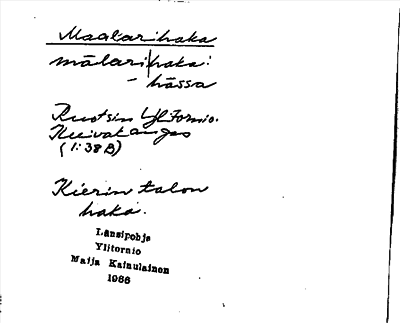 Maalarihaka
mālari|haka:
– hāssa
Ruotsin Ylitornio.
Kuivakangas
(1:38B)
Kierin talon
haka.
Länsipohja
Ylitornio
Maija Kainulainen
1966